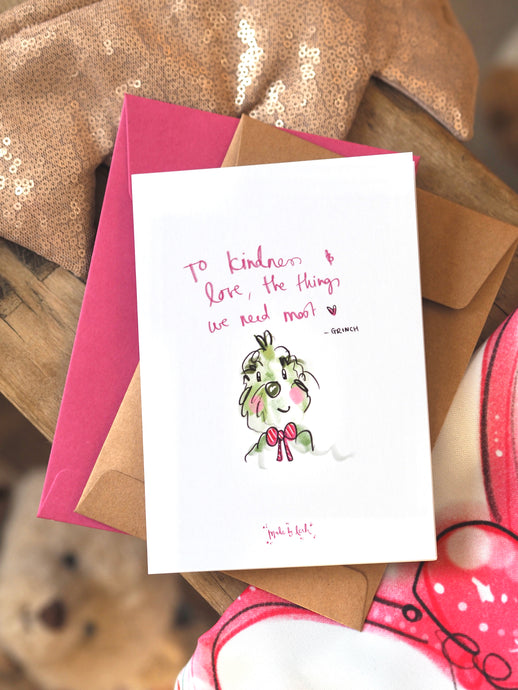 To kindness &
love, the things
we need most
- GRINCH